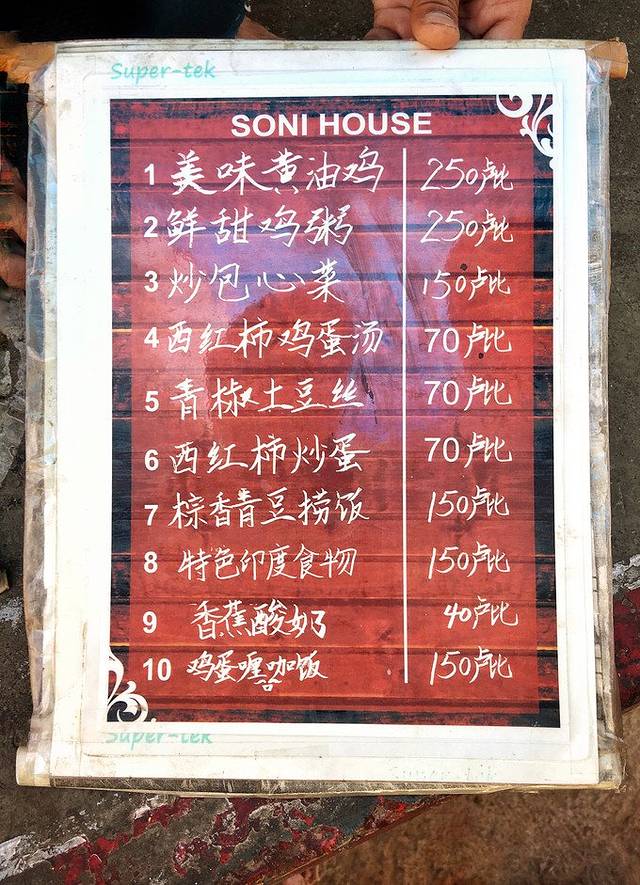 Super-tek
SONI HOUSE
1 美味黄油鸡 250卢比
2 鲜甜鸡粥 250卢比
3 炒包心菜 150卢比
4 西红柿鸡蛋汤 70卢比
5 青椒土豆丝 70卢比
6 西红柿炒蛋 70卢比
7 棕香青豆捞饭 150卢比
8 特色印度食物 150卢比
9 香蕉酸奶 40卢比
10 鸡蛋喱咖饭 150卢比
Super-tek